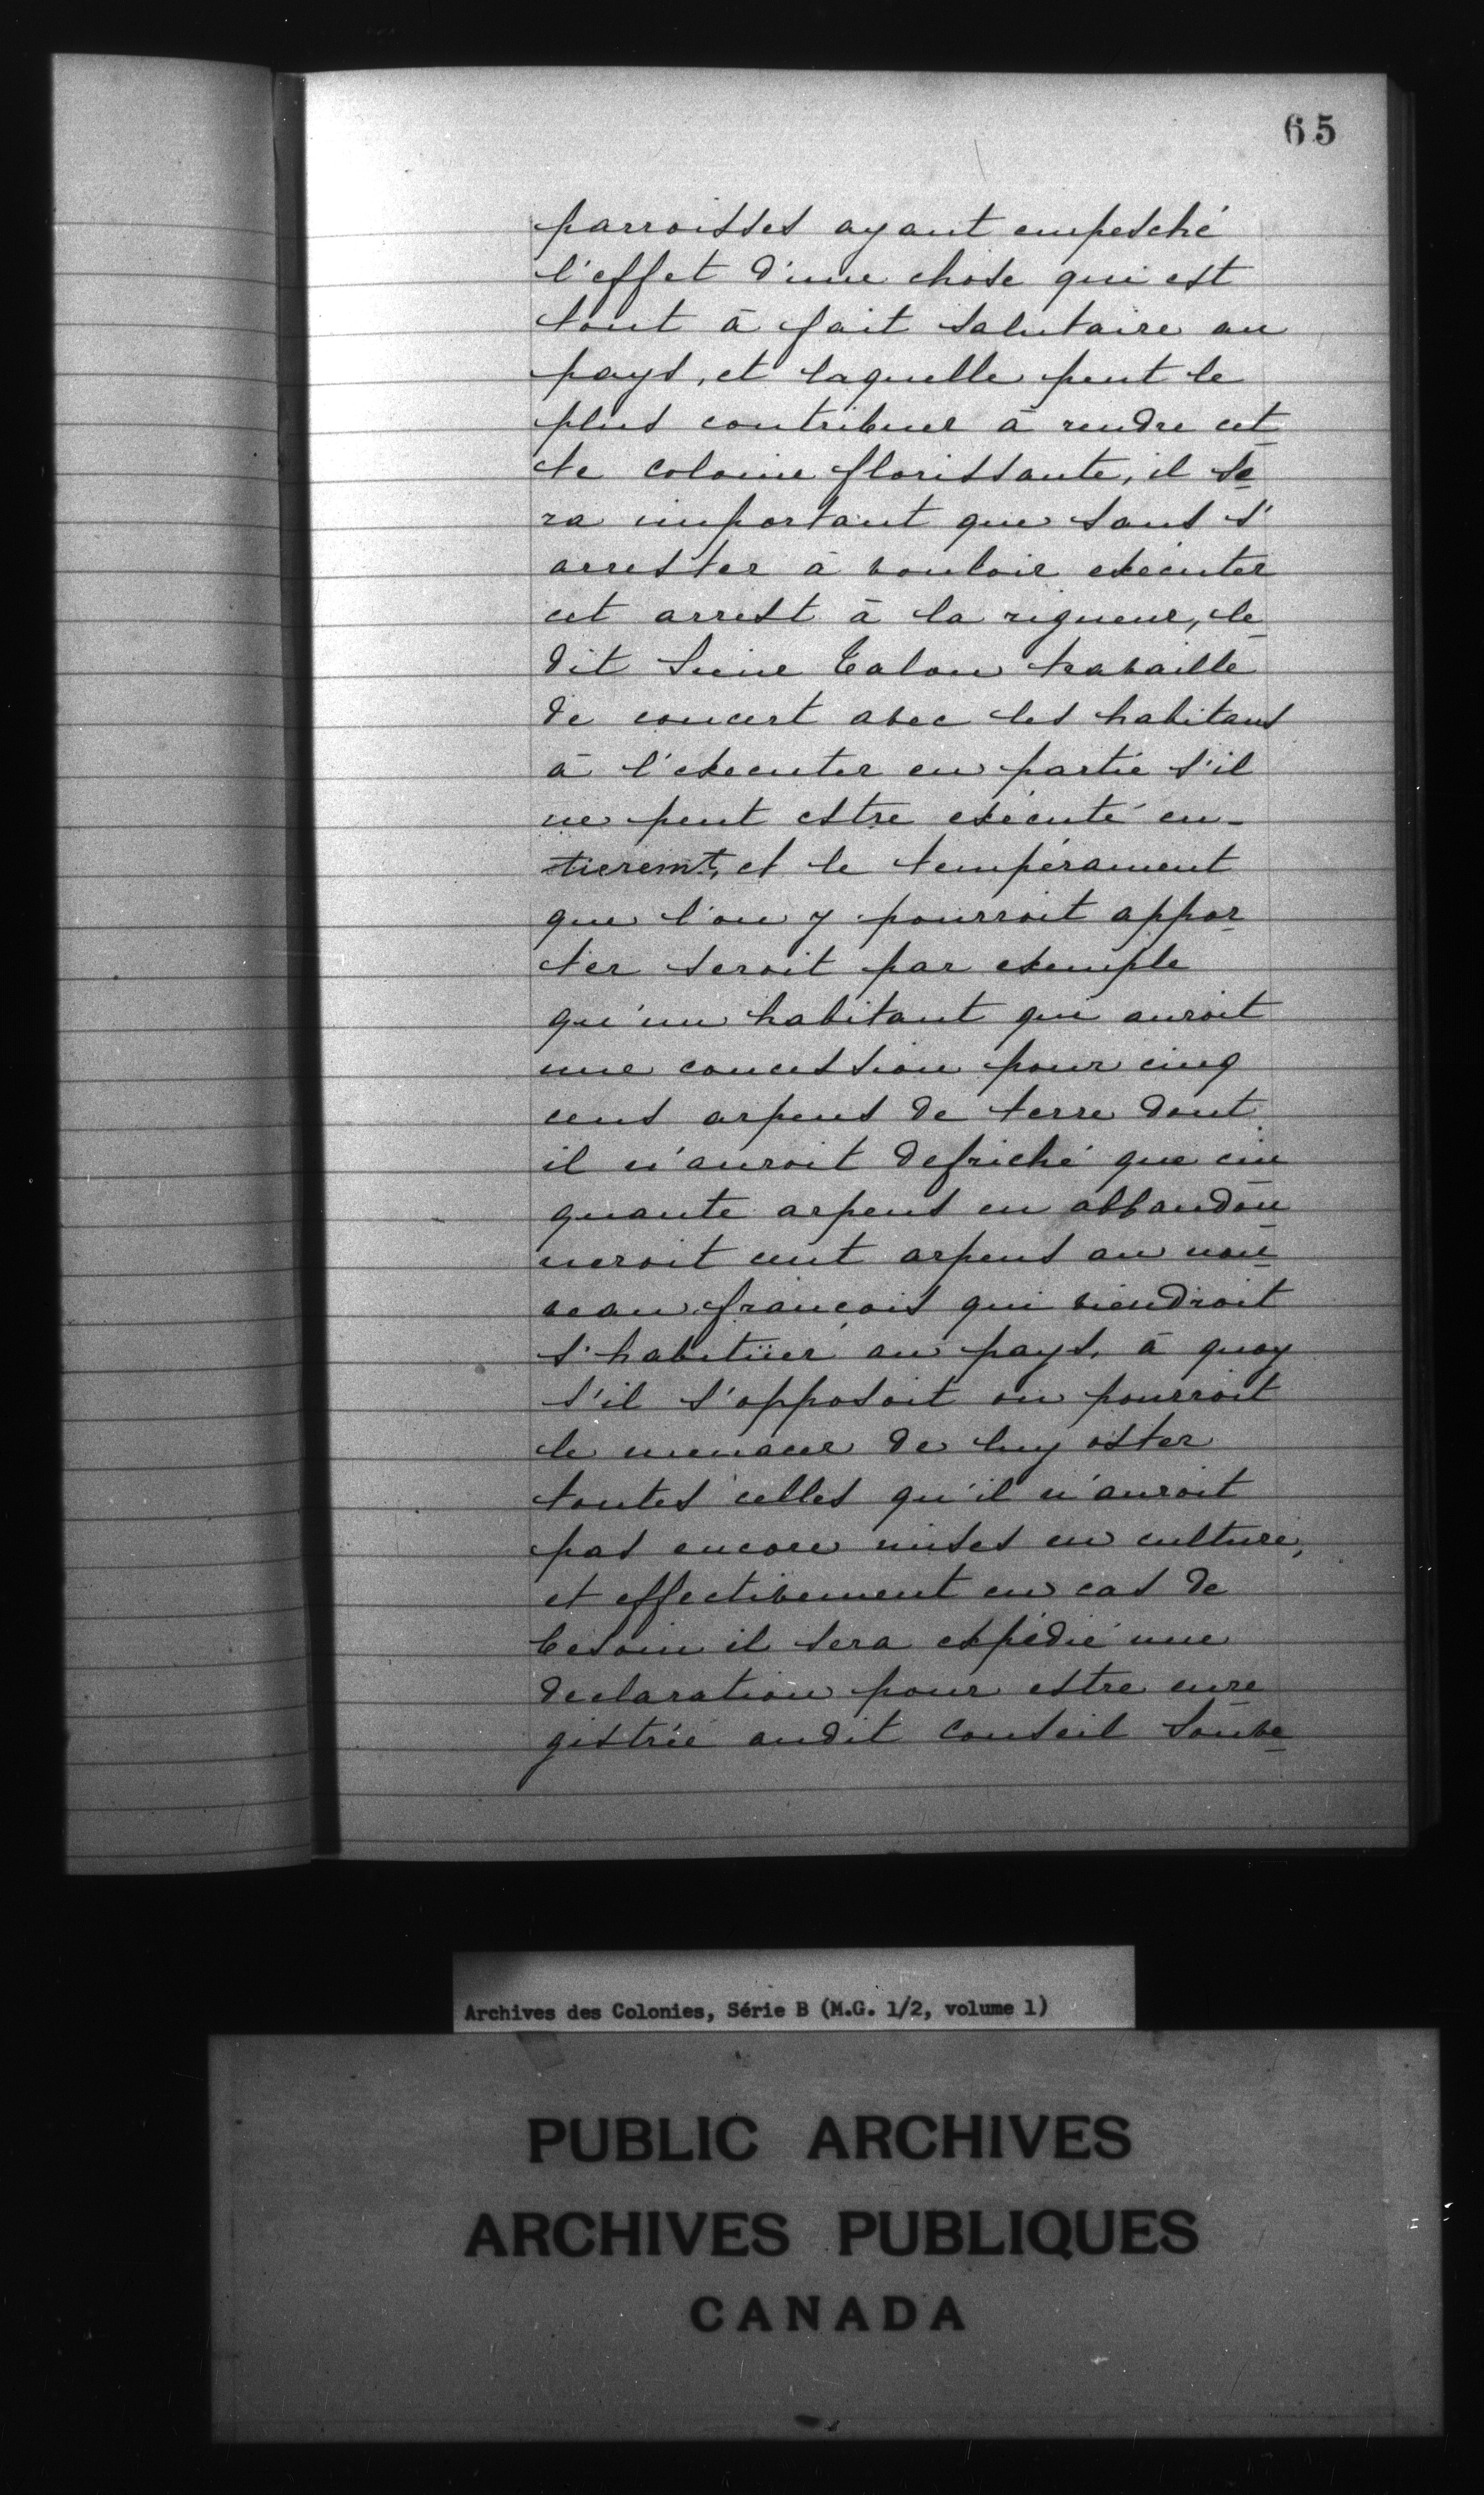 65
parroisses ayant empesché
l'effet d'une chose qui est
tout à fait salutaire au
pays, et laquelle peut le
plus contribuer à rendre cet-
te colonie florissante, il se-
ra important que sans s'
arrester à vouloir executer
cet arrest à la rigueur, le-
dit Sieur Talon travaille
de concert avec les habitans
à l'executer en partie s'il
ne peut estre exécuté en-
tieremt, et le tempérament
que l'on y pourroit appor-
ter seroit par exemple
qu'un habitant qui auroit
une concession pour cinq
cens arpens de terre dont
il n'auroit defriché que cin-
quante arpens en abbandon-
neroit cent arpens au nou-
veau françois qui viendroit
s'habitüer au pays, à quoy
s'il s'opposoit on pourroit
le menacer de luy oster
toutes celles qu'il n'auroit
pas encore mises en culture,
et effectivement en cas de
besoin il sera expédié une
declaration pour estre enre
gistrée audit Conseil Souve-
Archives des Colonies, Série B (M.G. 1/2, volume 1)
PUBLIC ARCHIVES
ARCHIVES PUBLIQUES
CANADA